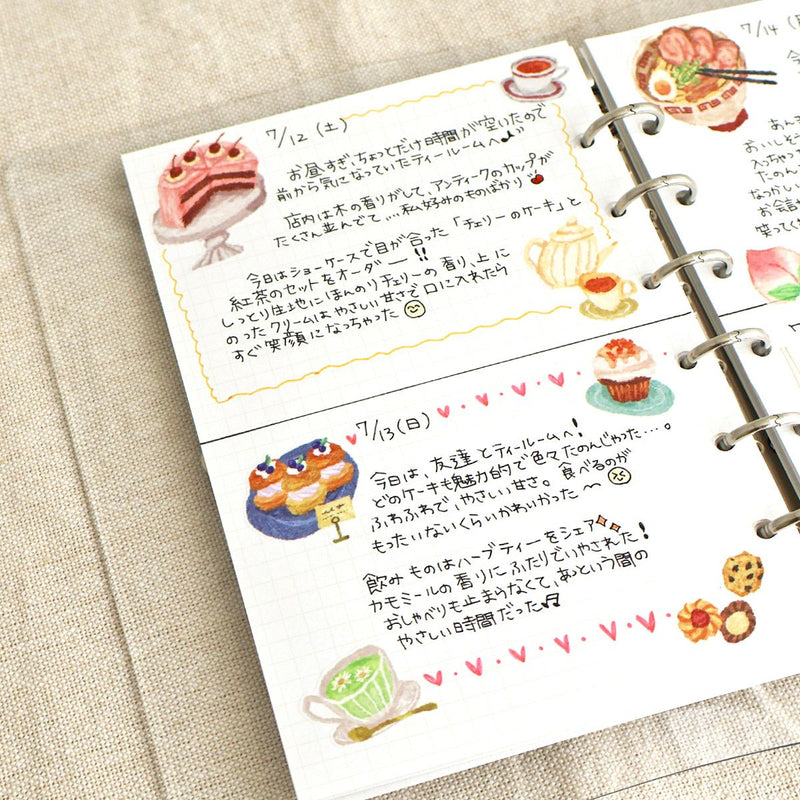 7/12 (土)
お昼すぎ、ちょっとだけ時間が空いたので
前から気になっていたティールームへ♪
店内は木の香りがして、アンティークのカップが
たくさん並んでて…私好みのものばかり
今日はショーケースで目が合った「チェリーのケーキ」と
紅茶のセットをオーダー!!
しっとり生地にほんのりチェリーの香り、上に
のったクリームはやさしい甘さで口に入れたら
すぐ笑顔になっちゃった
7/13 (日)
今日は、友達とティールームへ!
どのケーキも魅力的で色々たのんじゃった…。
ふわふわで、やさしい甘さ。食べるのが
もったいないくらいかわいかった〜
飲みものはハーブティーをシェア
カモミールの香りにふたりでいやされた!
おしゃべりも止まらなくて、あっという間の
やさしい時間だった♫
7/14
今
あんま
おいしそう
入っちゃっ
たのんへ
なつかし
お会計
笑ってく
7